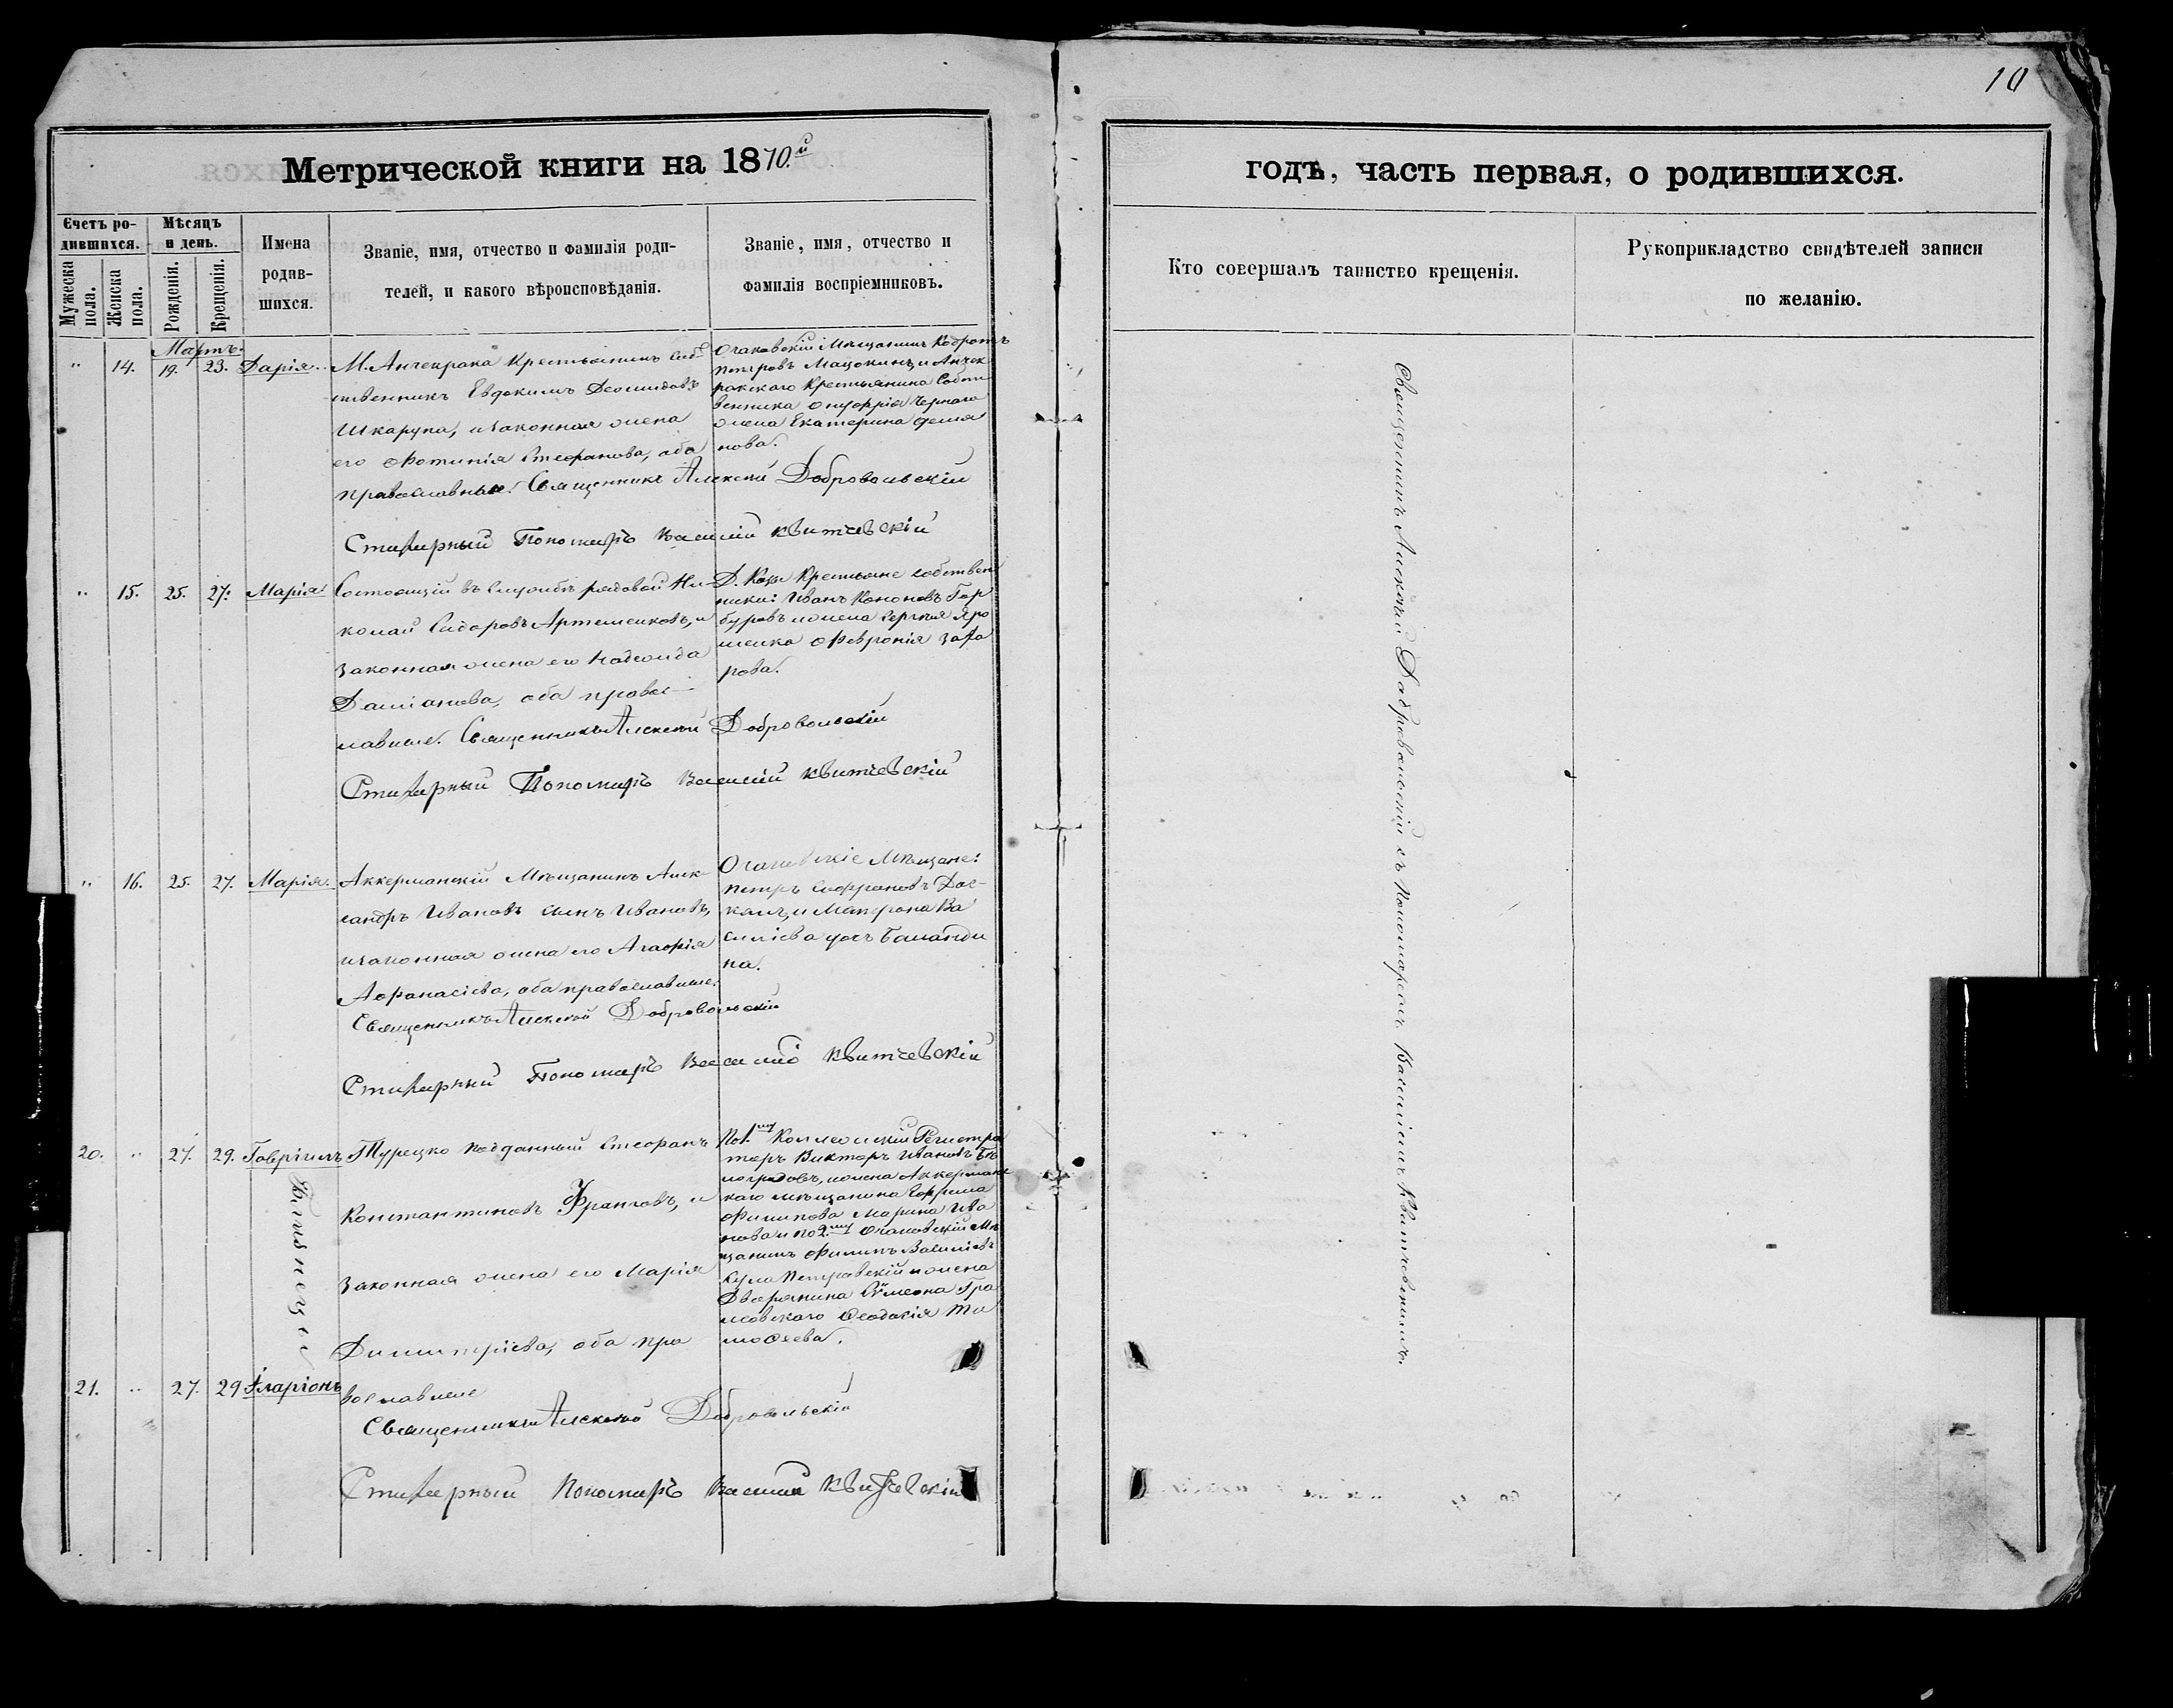 10
Метрической книги на 1870.й
годъ, часть первая, о родившихся.
Счетъ родившихся.
Мѣсяцъ и день.
Мужеска пола.
Женска пола.
Рожденія.
Крещенія.
Имена родившихся.
Званіе, имя, отчество и фамилія роди-
телей, и какого вѣроисповѣданія.
Званіе, имя, отчество и
фамилія воспріемниковъ.
Кто совершалъ таинство крещенія.
Рукоприкладство свидѣтелей записи
по желанію.
Мартъ.
" 14. 19. 23. Дарія.
М. Анчекрака Крестьянинъ соб
ственникъ Евдокимъ Деомидовъ
Шкарупа, и законная жена
его Фотинія Стефанова, оба
православные. Священникъ Алексій Добровольскій
Стихарный Пономарь Василій Квитчевскій
Очаковскій Мѣщанинъ Кодратъ
Петровъ Мацокинъ, и Анчек
ракскаго Крестьянина Собст
венника Онуфрія Чернаго
жена Екатерина Демья
нова.
" 15. 25. 27. Марія
Состоящій въ службѣ рядовой Ни-
колай Сидоровъ Артеменковъ, и
законная жена его Надежда
Даміанова, оба правос-
лавные. Священникъ Алексій Добровольскій
Стихарный Пономарь Василій Квитчевскій
Крестьяне собствен
ники: Иванъ Кононовъ Гор
буровъ и жена Сергѣя Яро
шенка Февронія Заха
рова.
" 16. 25. 27. Марія.
Аккерманскій Мѣщанинъ Алек-
сандръ Ивановъ сынъ Ивановъ,
и законная жена его Агафія
Афанасіева, оба православные.
Священникъ Алексій Добровольскій
Стихарный Пономарь Василій Квитчевскій
Очаковскіе Мѣщане:
Петръ Софроновъ Дос-
калъ, и Матрона Ва
силіева дочь Баланди
на.
20. " 27. 29. Гавріилъ
Близнецы
21. " 27. 29 Иларіонъ
Турецко подданный Стефанъ
Константиновъ Франговъ, и
законная жена его Марія
Димитріева, оба пра
вославные
Священникъ Алексій Добровольскій
Стихарный Пономарь Василій Квитчевскій
По 1.му Коллежскій Регистра
торъ Викторъ Ивановъ Бѣ
логрядовъ, и жена Аккерманс
каго мѣщанина Ефрема
Филипова Марина Ива
нова и по 2.му Очаковскій Мѣ
щанинъ Филипъ Василіевъ
Петровскій и жена
Дворянина Симеона Гра
Феодосія Ти
мофеева.
Священникъ Алексій Добровольскій съ Пономаремъ Василіемъ Квитчевскимъ.